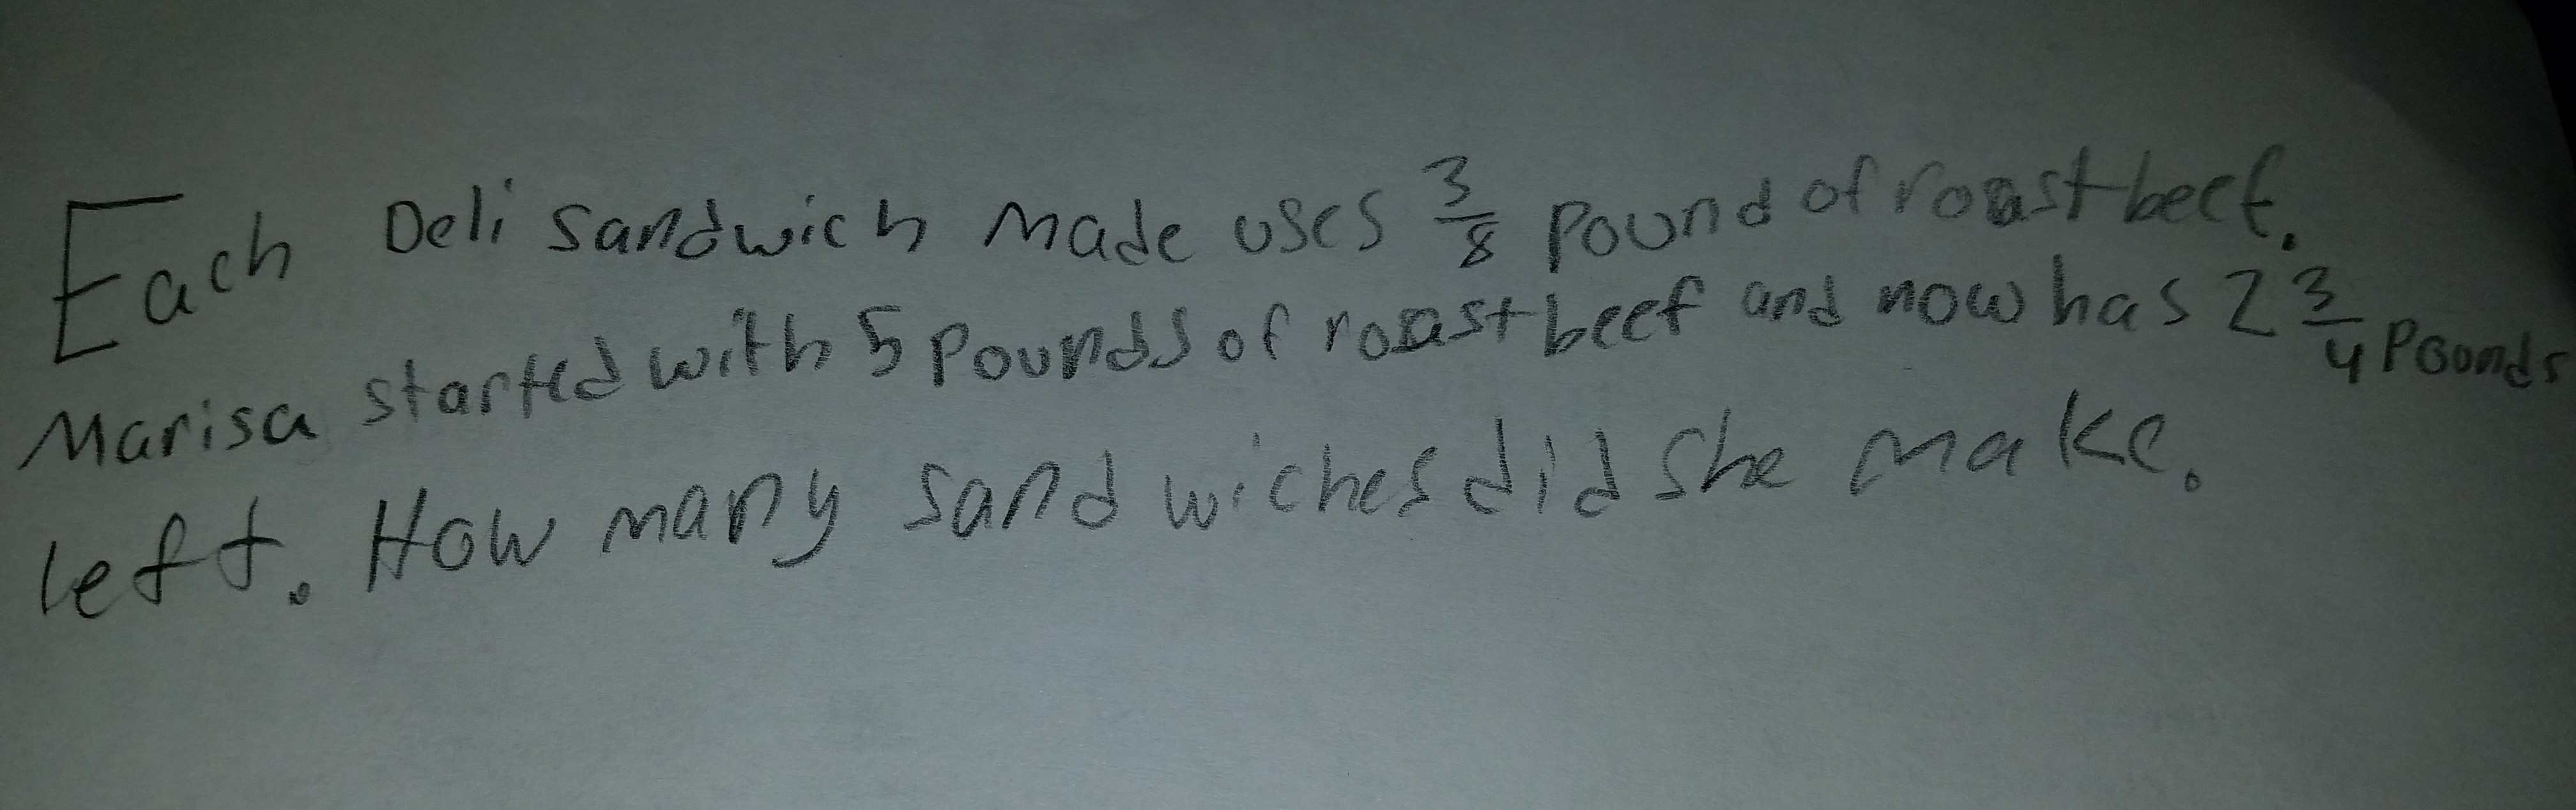 Each Deli sandwich made uses 3/8 pound of roast beef.
Marisa started with 5 pounds of roast beef and now has 2 3/4 Pounds
left. How many sandwiches did she make.